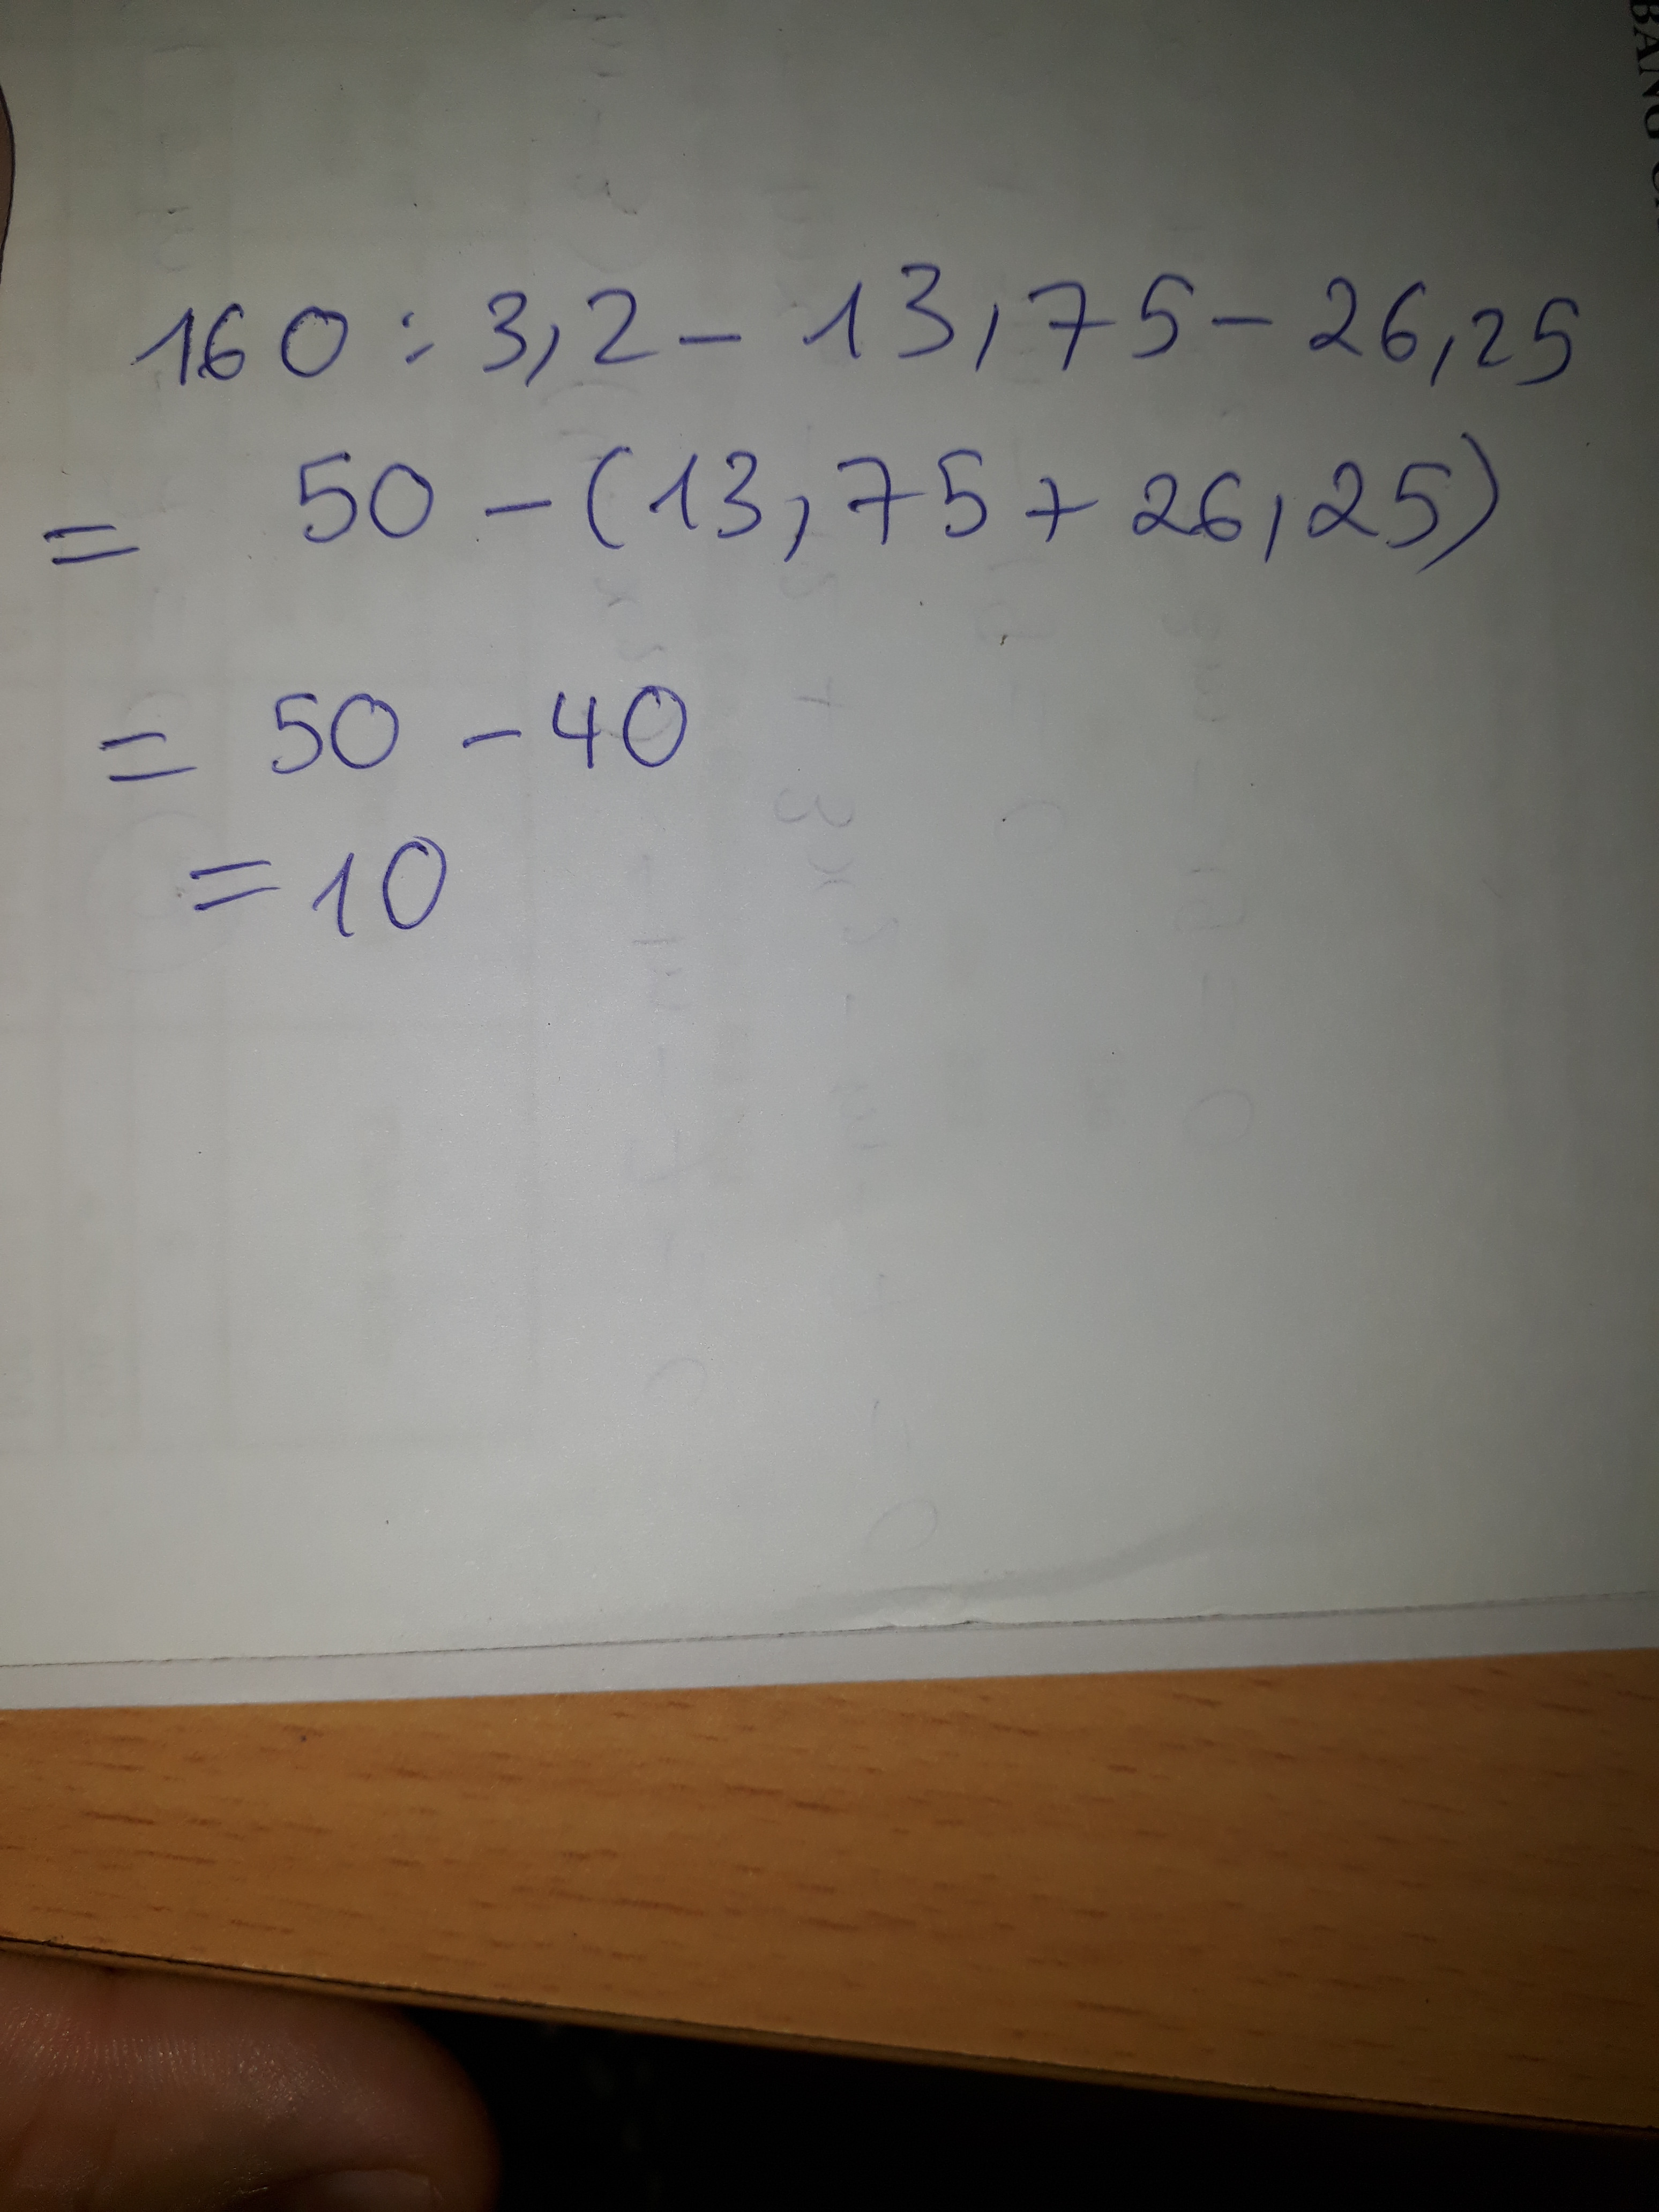 160 : 3,2 - 13,75 - 26,25
= 50 - (13,75 + 26,25)
= 50 - 40
= 10